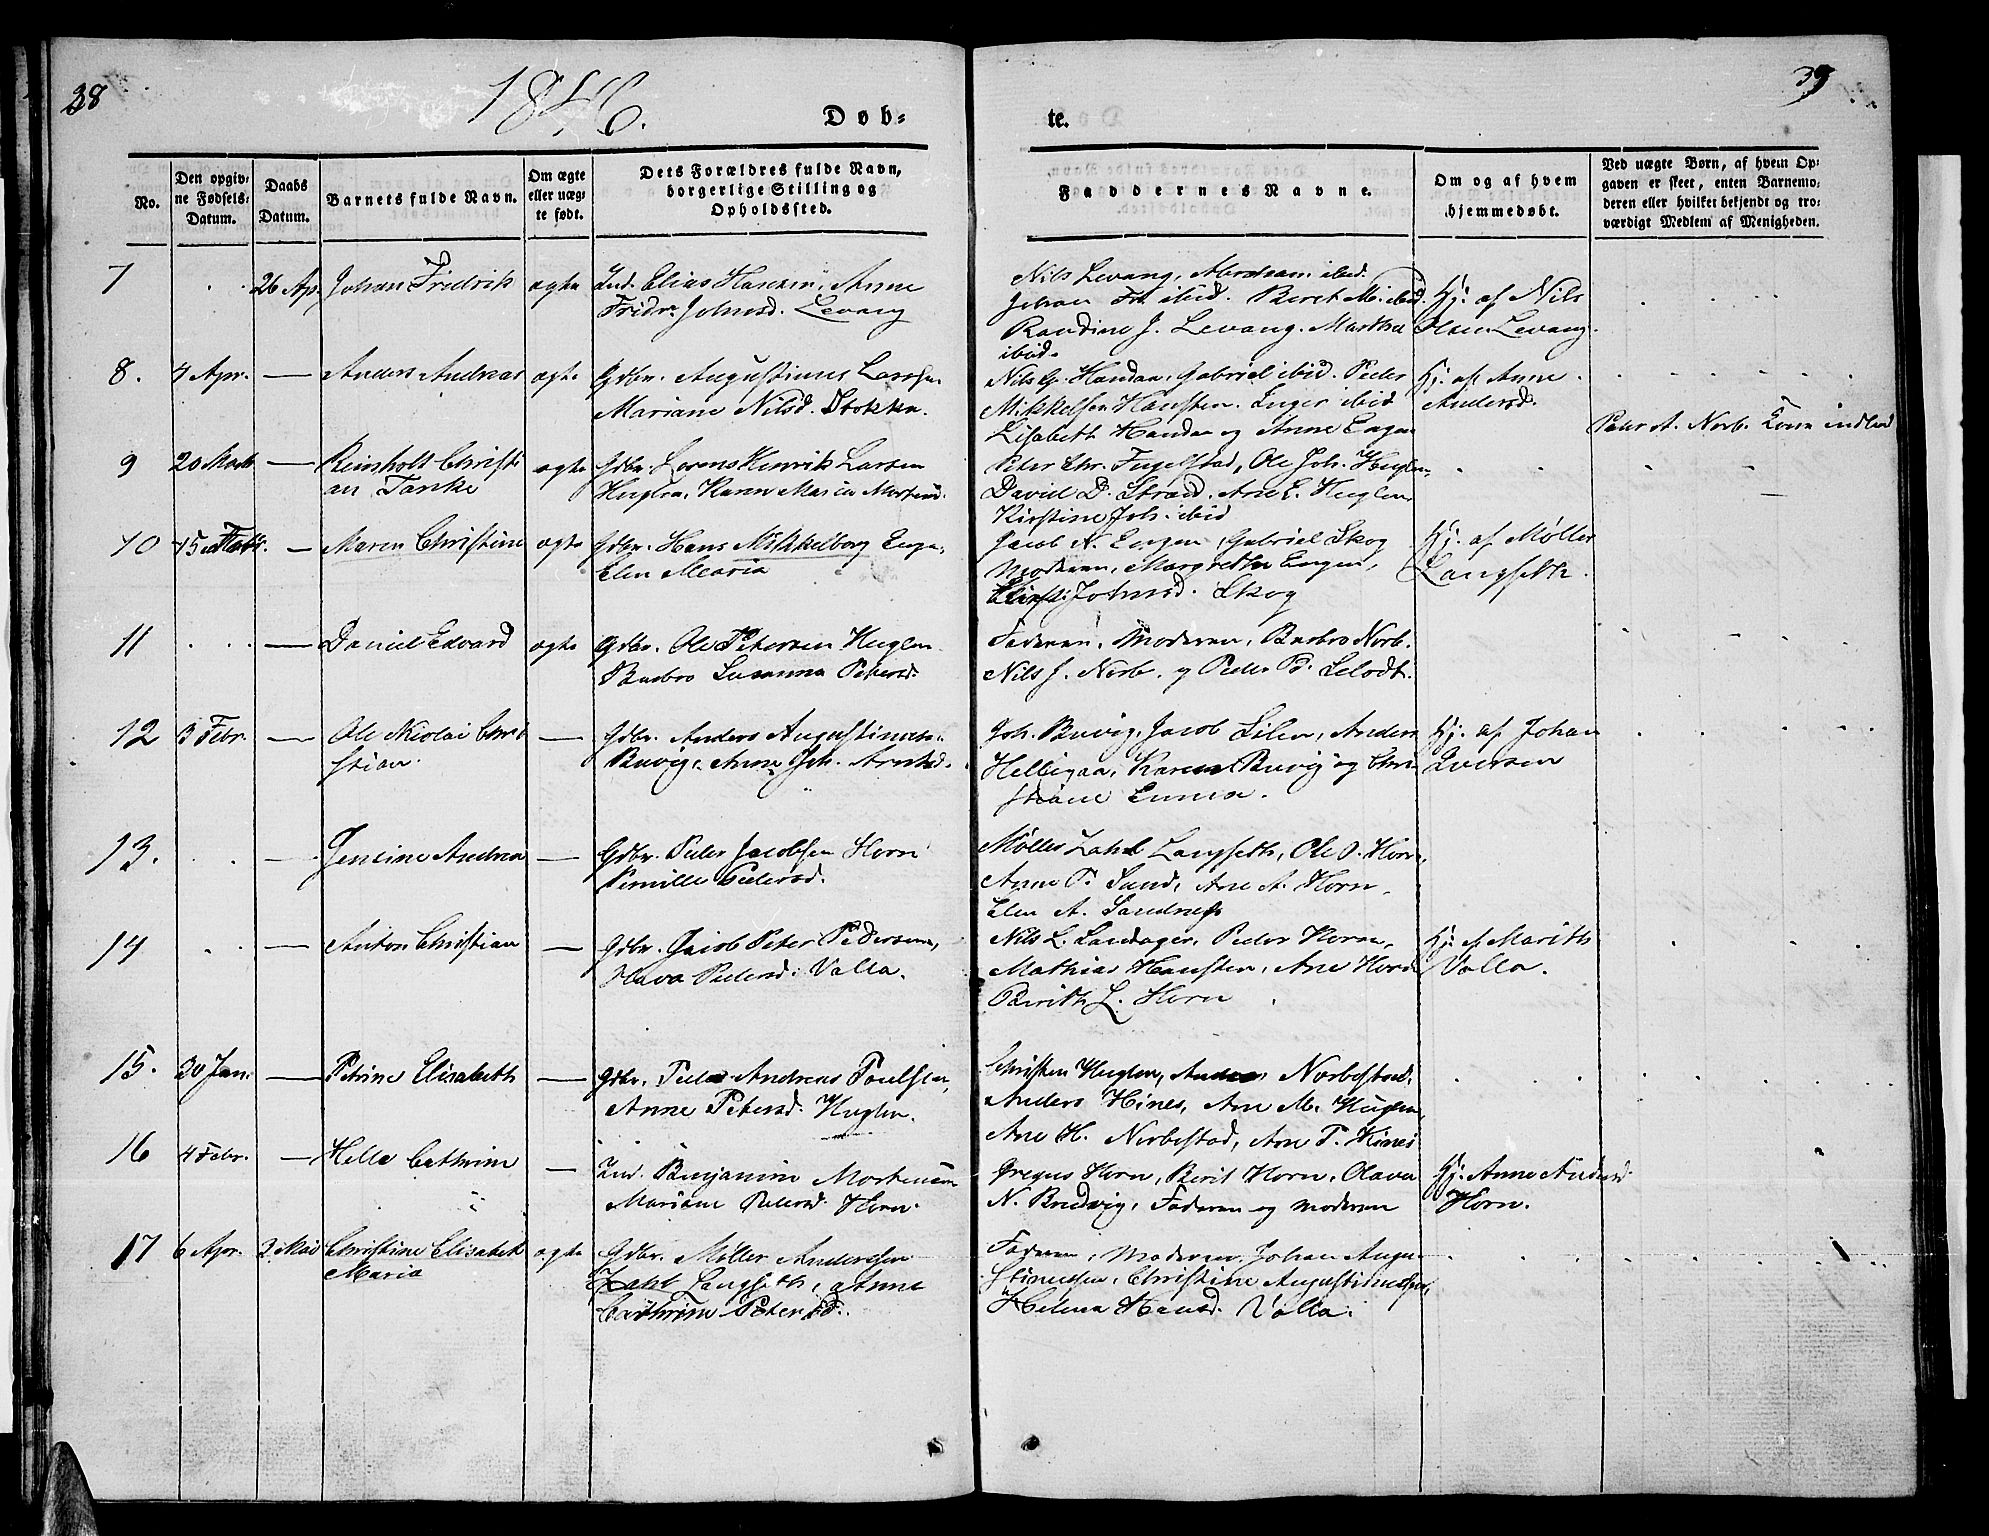 38
1846.
Døb-
te.
39
No.
Den opgiv-
ne Fødsels-
Datum.
Daabs
Datum.
Barnets fulde Navn.
Om ægte
eller uæg-
te født.
Dets Forældres fulde Navn,
borgerlige Stilling og
Opholdssted.
Faddernes Navne.
Om og af hvem
hjemmedøbt.
Ved uægte Børn, af hvem Op-
gaven er skeet, enten Barnemo-
deren eller hvilket bekjendt og tro-
værdigt Medlem af Menigheden.
7 26 Ap. Johan Fridrik ægte Ind. Elias Hansen, Anne
Fridr. Johnsd. Levang
Nils Levang, Abraham ibid.
Johan Fr. ibid. Beret M. ibid.
Randine J. Levang. Martha
ibid.
Hj. af Nils
Olsen Levang.
8. 4 Apr. — Anders Andreas ægte Gdbr. Augustinus Larsen
Mariane Nilsd. Stokka.
Nils G. Handan, Gabriel ibid. Peder
Mikkelsen Hansten. Inger ibid
Lisabeth Handan og Anne Engen
Hj. af Anne
Andersd.
Peter A. Norb. Kone indled
9 20 Marts — Reinholt Christi
an Tanke
ægte Gdbr. Lorens Henrik Larsen
Huglen, Karen Maria Mortensd.
Peter Chr. Fugelstad, Ole Joh. Huglen,
David D. Strand, Ane E. Huglen,
Kirstine Joh. ibid
10 15 Febr. — Maren Christine ægte Gdbr. Hans Mikkelborg Engen,
Elen Maria
Jacob N. Engen, Gabriel Skog
Moderen, Margrethe Engen,
Johnsd. Skog
Hj. af Møller
Langseth.
11 — Daniel Edvard ægte Gdbr. Ole Petersen Huglen
Barbro Susanna Petersd.
Faderen, Moderen, Barbro Norb.
Nils J. Norb. og Peder P. Selodt.
12 3 Febr. — Ole Nicolai Chri
stian.
— Gdbr. Anders Augustinusen
Buvig, Anne Joh. Arntsd.
Joh. Buvig, Jacob Lilen, Anders
Helligaa, Karen Buvig og Chri
stiane Emma.
Hj. af Johan
Iversen
13. — Jensine Andrea — Gdbr. Peder Jacobsen Horn
Pernille Pedersd.
Møller Zahl Langseth, Ole P. Horn,
Anne P. Sund, Ane A. Horn,
Elen A. Sandnes
14 — Anton Christian — Gdbr. Jacob Peter Pedersen,
Hava Pedersd. Valla.
Nils L. Landager, Peder Horn,
Mathias Hansten, Ane Horn
Berith L. Horn
Hj. af Marith
Valla.
15. 30 Jan. — Petrine Elisabeth — Gdbr. Peder Andreas Poulsen,
Anne Petersd. Huglen.
Christen Huglen, Anders Norbostad,
Anders Hines, Ane M. Huglen,
Ane H. Norbostad, Ane P. Hines
16 4 Febr. — Helle Cathrine — Ind. Benjamin Mortensen
Mariane Pedersd. Horn.
Gregus Horn, Berit Horn, Olava
N. Bredvig, Faderen og Moderen
Hj. Anne Andersd
Horn.
17 6 Apr. 3 Mai Christine Elisabet
Maria
ægte Gdbr. Møller Andersen
Zahl Langseth, Anne
Cathrine Petersd.
Faderen, Moderen, Johan Augu
stinussen, Christine Augustinussen,
Helena Hansd. Valla.